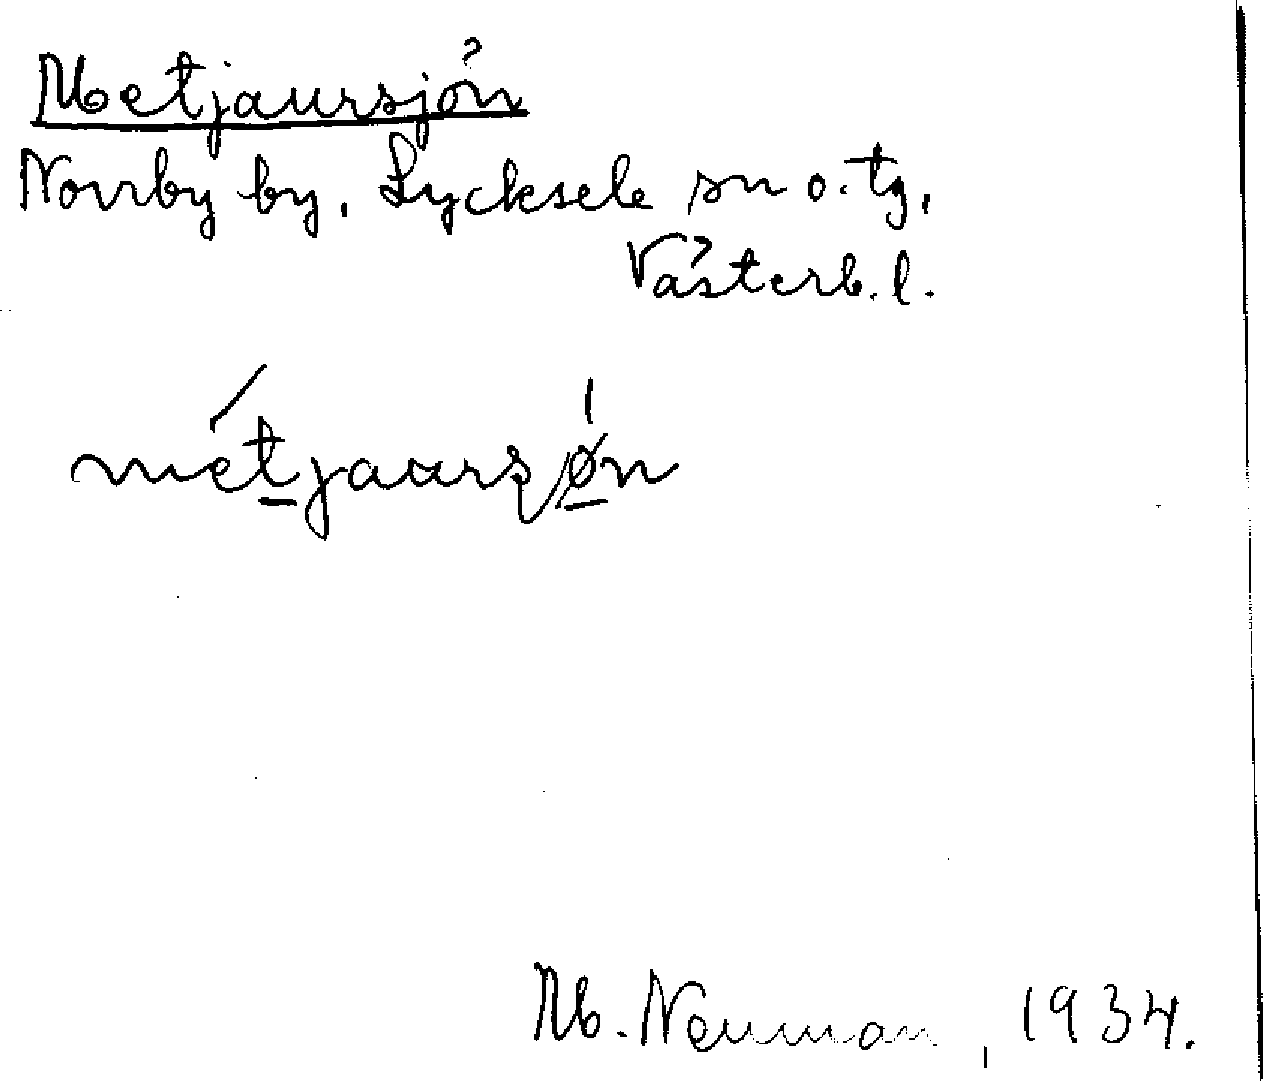 Metjaursjön
Norrby by, Lycksele sn o. tg,
Västerb. l.
métjaursjøn
M. Neuman, 1934.